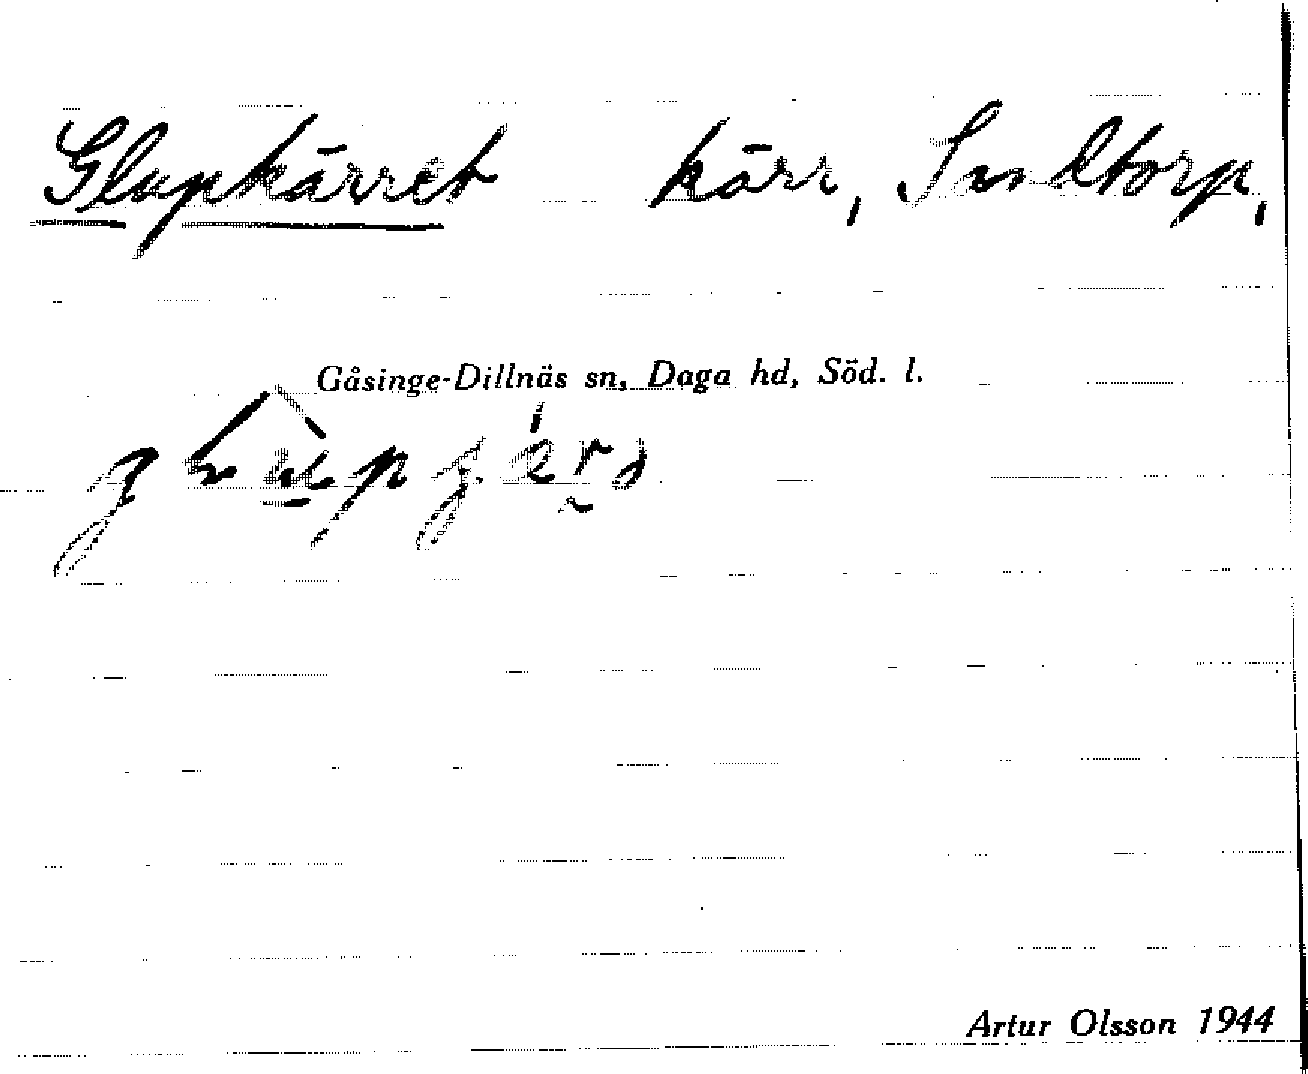 Glupkärret kärr,
Gåsinge-Dillnäs sn, Daga hd, Söd. l.
Artur Olsson 1944